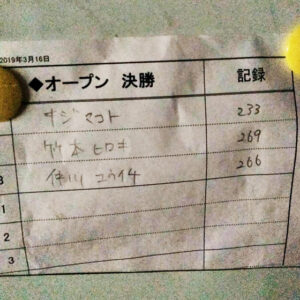 2019年3月16日
◆オープン 決勝 記録
オジ マコト 233
竹本 ヒロキ 269
3 266
1
2
3